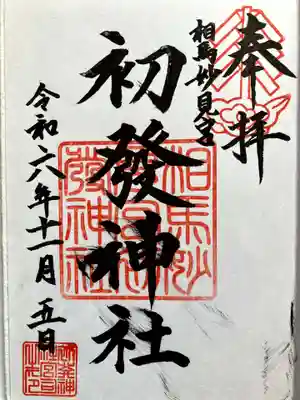 奉拝
相馬妙見宮
初發神社
令和六年十一月五日
相馬妙
見宮初
發神社